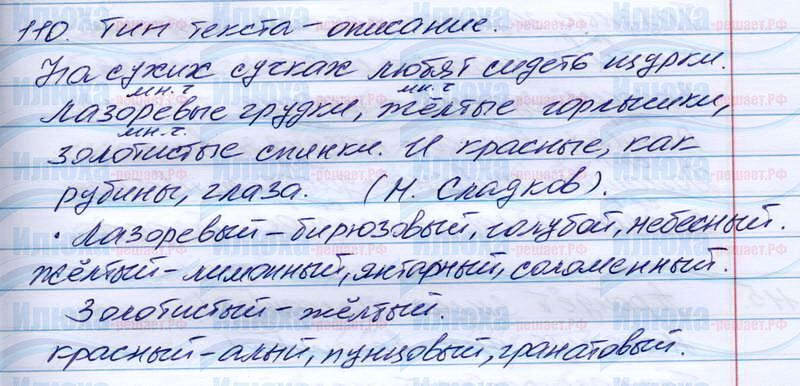 110. Тип текста - описание.
На сухих сучках любят сидеть щурки.
мн.ч мн.ч
Лазоревые грудки, жёлтые горлышки,
мн.ч.
золотистые спинки. И красные, как
рубины, глаза. (Н. Сладков).
· Лазоревый - бирюзовый, голубой, небесный.
Жёлтый - лимонный, янтарный, соломенный.
Золотистый - жёлтый.
Красный - алый, пунцовый, гранатовый.